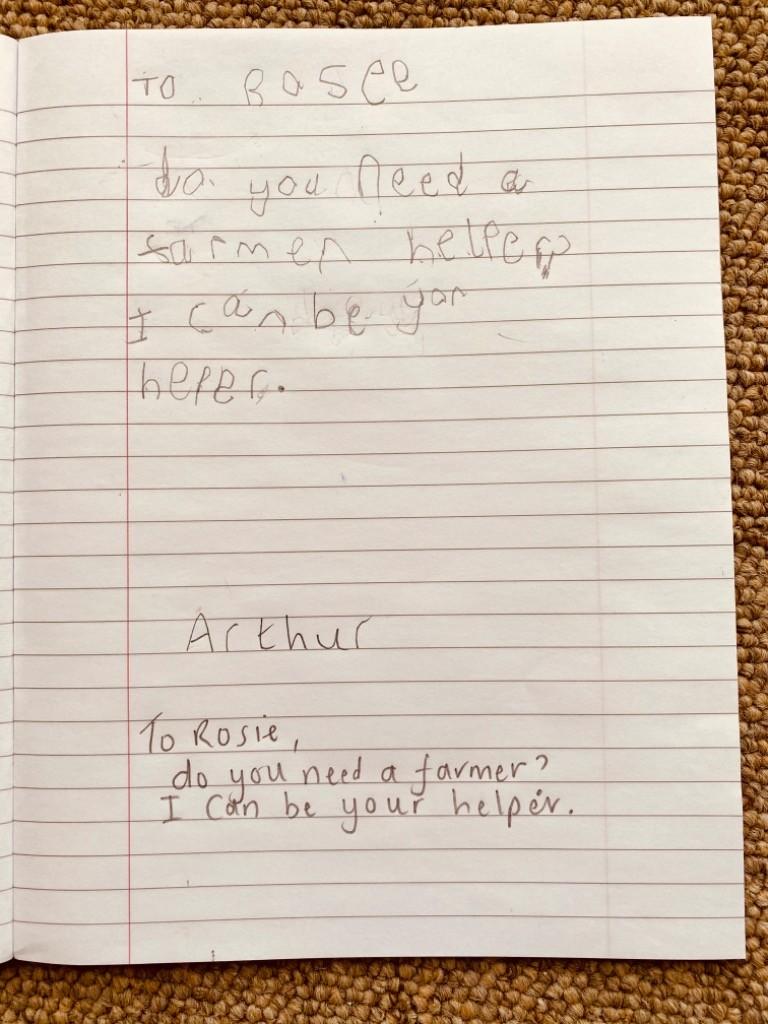 To Rosee
do. you need a
farmer helper?
I can be your
helper.
Arthur
To Rosie,
do you need a farmer?
I can be your helper.